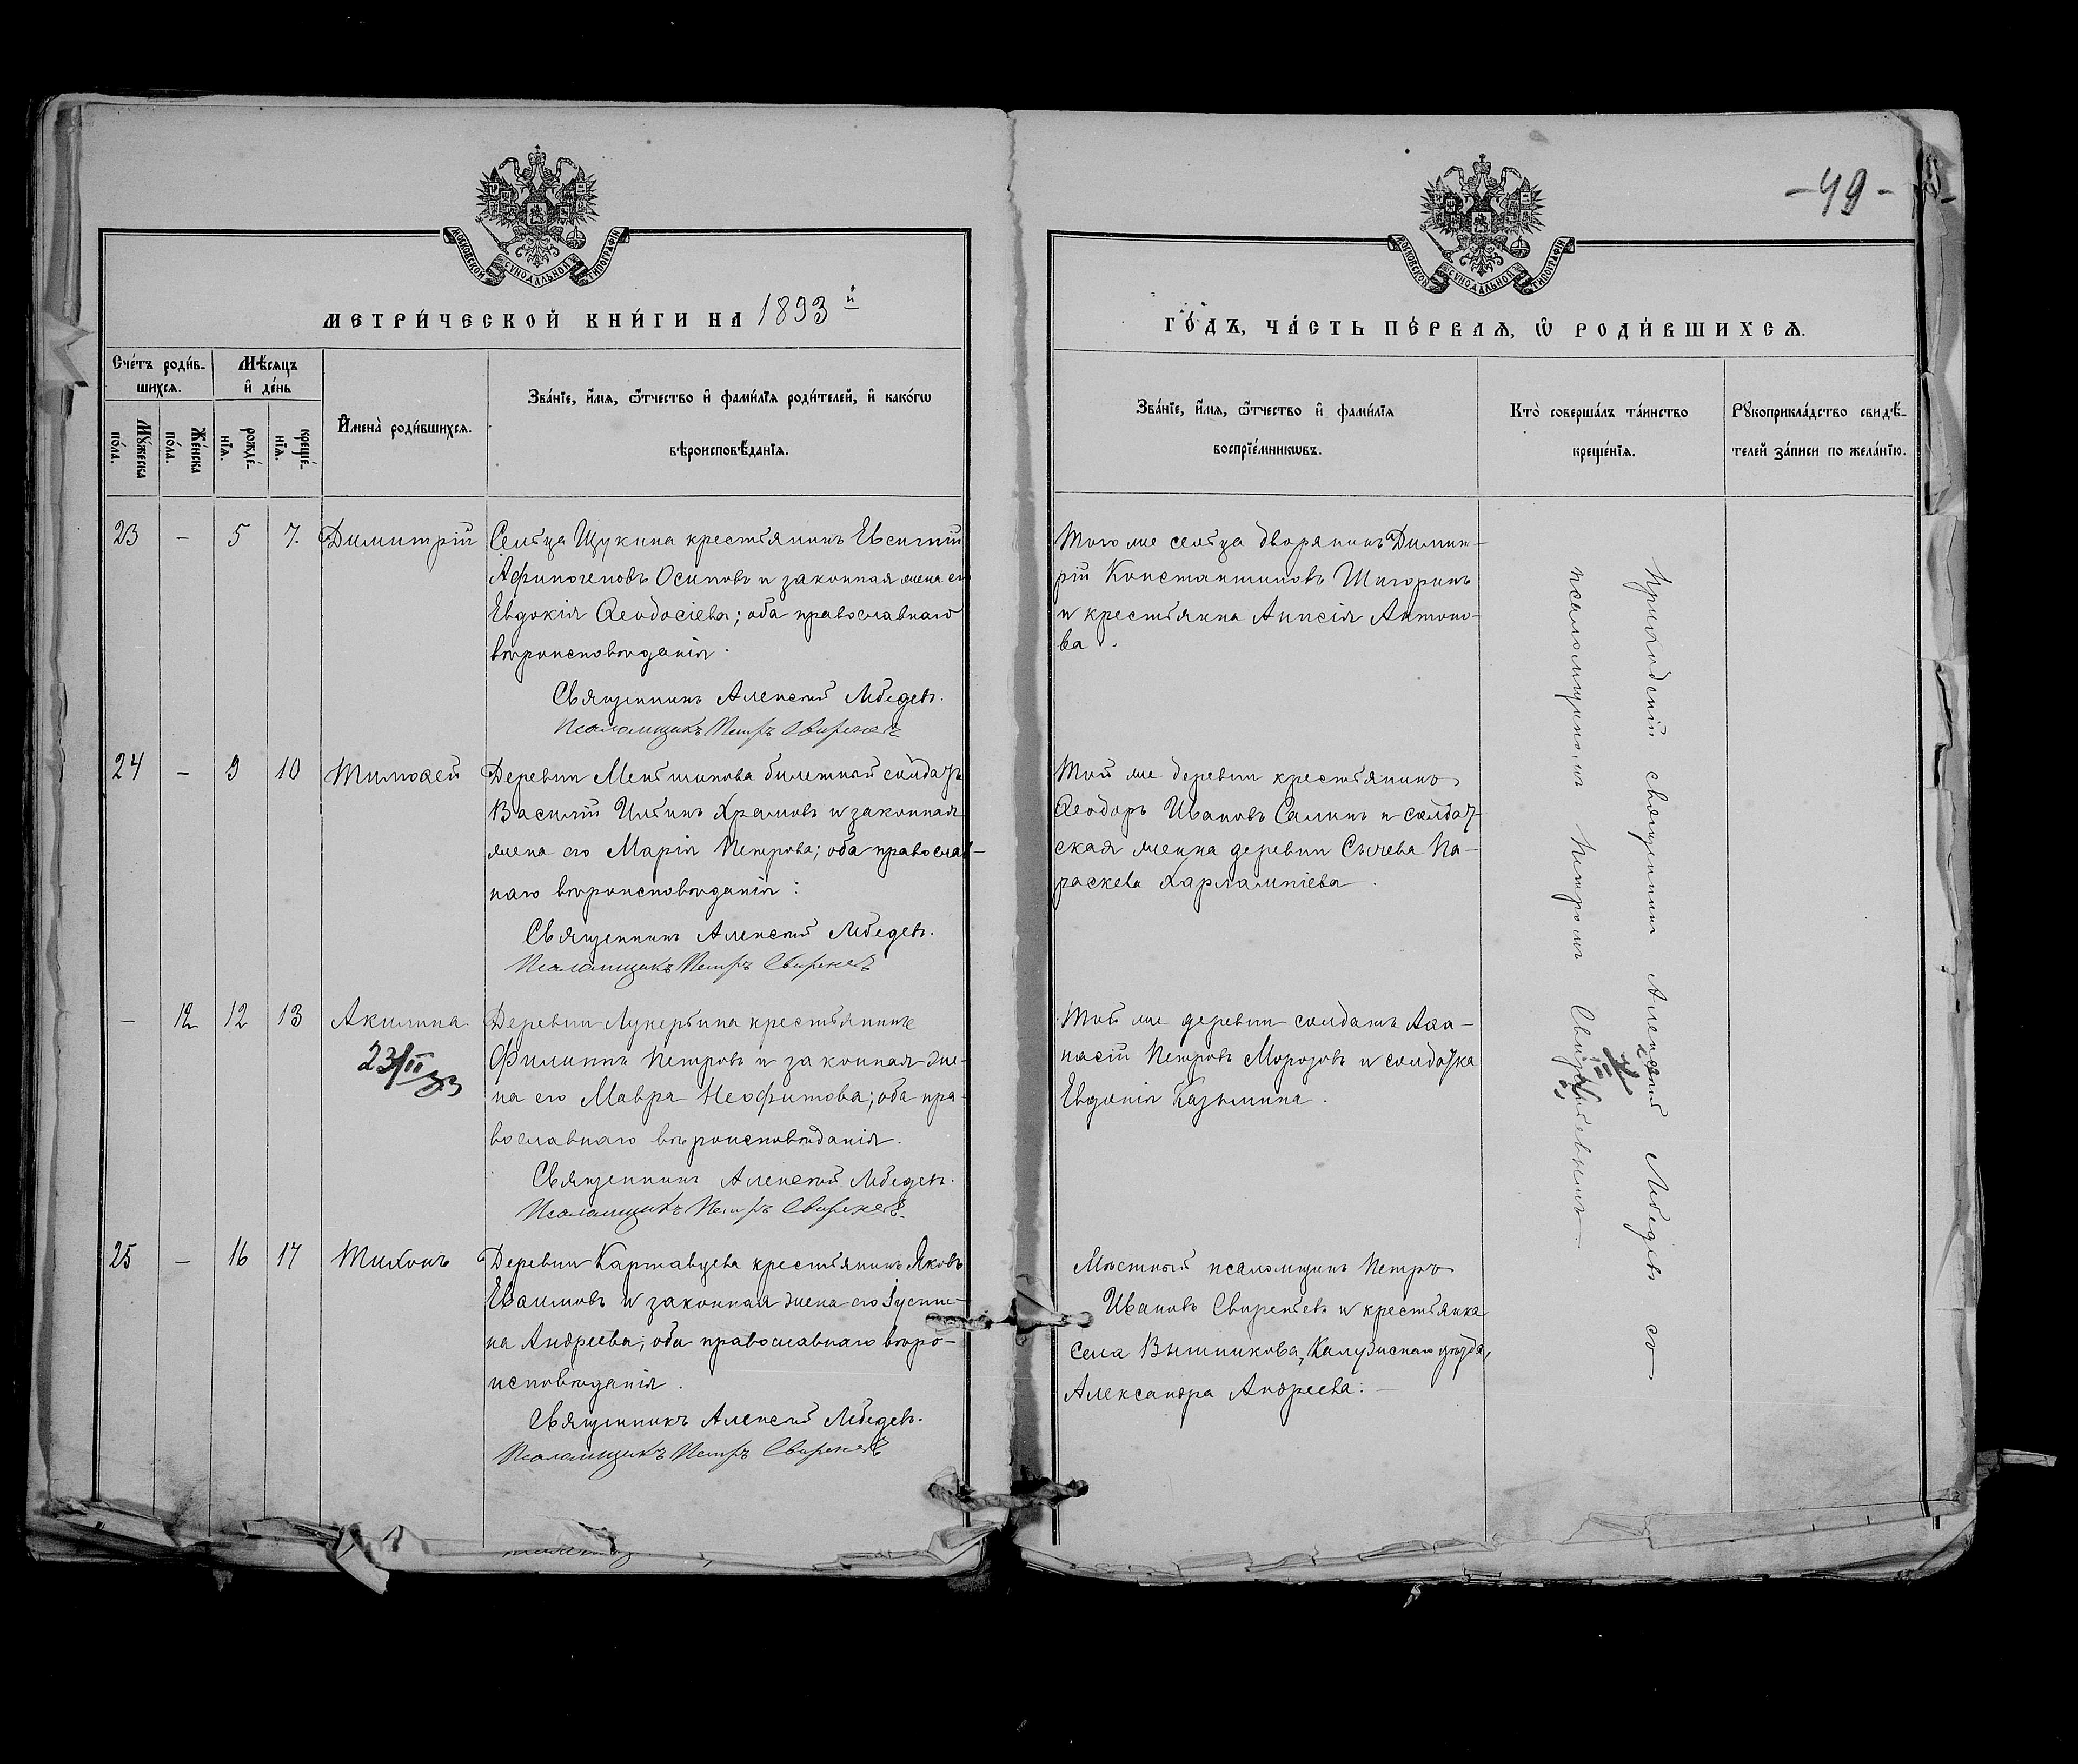 -49-
МОСКОВСКОЙ СѴНОДАЛЬНОЙ ТИПОГРАФІИ
МОСКОВСКОЙ СѴНОДАЛЬНОЙ ТИПОГРАФІИ
МЕТРИ́ЧЕСКОЙ КНИ́ГИ НА 1893 й
ГО́ДЪ, ЧА́СТЬ ПЕ́РВАѦ, Ѽ РОДИ́ВШИХСѦ.
Сче́тъ роди́в-
шихсѧ.
Мѣ́сѧцъ
и де́нь
Му́жеска
по́ла.
Же́нска
по́ла.
рожде́-
нїѧ.
креще́-
нїѧ.
Имена̀ роди́вшихсѧ.
Зва́нїе, и́мѧ, ѻ҆́тчество и҆ фами́лїѧ роди́телей, и҆ како́гѡ
вѣроисповѣ́данїѧ.
Зва́нїе, и́мѧ, ѻ҆́тчество и҆ фами́лїѧ
воспрїе́мникѡвъ.
Кто̀ соверша́лъ та́инство
креще́нїѧ.
Рꙋкоприкла́дство свидѣ́-
телей за́писи по жела́нїю.
23 - 5 7. Димитрій
Сельца Щукина крестьянинъ Евсигній
Афиногеновъ Осиповъ и законная жена его
Евдокія Ѳеодосіева; оба православнаго
вѣроисповѣданія.
Священникъ Алексій Лебедевъ.
Псаломщикъ Петръ Свиренсвъ
Того же сельца дворянинъ Димит-
рій Константиновъ Шигоринъ
и крестьянка Анисія Антоно-
ва.
24 - 9 10 Тимоѳей
Деревни Меньшикова билетный солдатъ
Василій Ильинъ Храмовъ и законная
жена его Марія Петрова; оба православ-
наго вѣроисповѣданія:
Священникъ Алексій Лебедевъ.
Псаломщикъ Петръ Свиренсвъ
Той же деревни крестьянинъ
Ѳеодоръ Ивановъ Салинъ и солдат-
ская женка деревни Сычева Па-
раскева Харлампіева.
- 12 12 13 Акилина
23/II 33
Деревни Лукерьина крестьянинъ
Филиппъ Петровъ и законная же-
на его Мавра Неофитова; оба пра-
вославнаго вѣроисповѣданія.
Священникъ Алексій Лебедевъ.
Псаломщикъ Петръ Свиренсвъ
Той же деревни солдатъ Аѳа-
насій Петровъ Морозовъ и солдатка
Евдокія Казьмина.
25 - 16 17 Тихонъ
Деревни Картавцева крестьянинъ Яковъ
Евѳимовъ и законная жена его Іусти-
на Андреева; оба православнаго вѣро-
исповѣданія.
Священникъ Алексій Лебедевъ.
Псаломщикъ Петръ Свиренсвъ
Мѣстный псаломщикъ Петръ
Ивановъ Свиренсвъ и крестьянка
села Вышникова, Калужскаго уѣзда,
Александра Андреева. -
Приходскій священникъ Алексій Лебедевъ съ
псаломщикомъ Петромъ